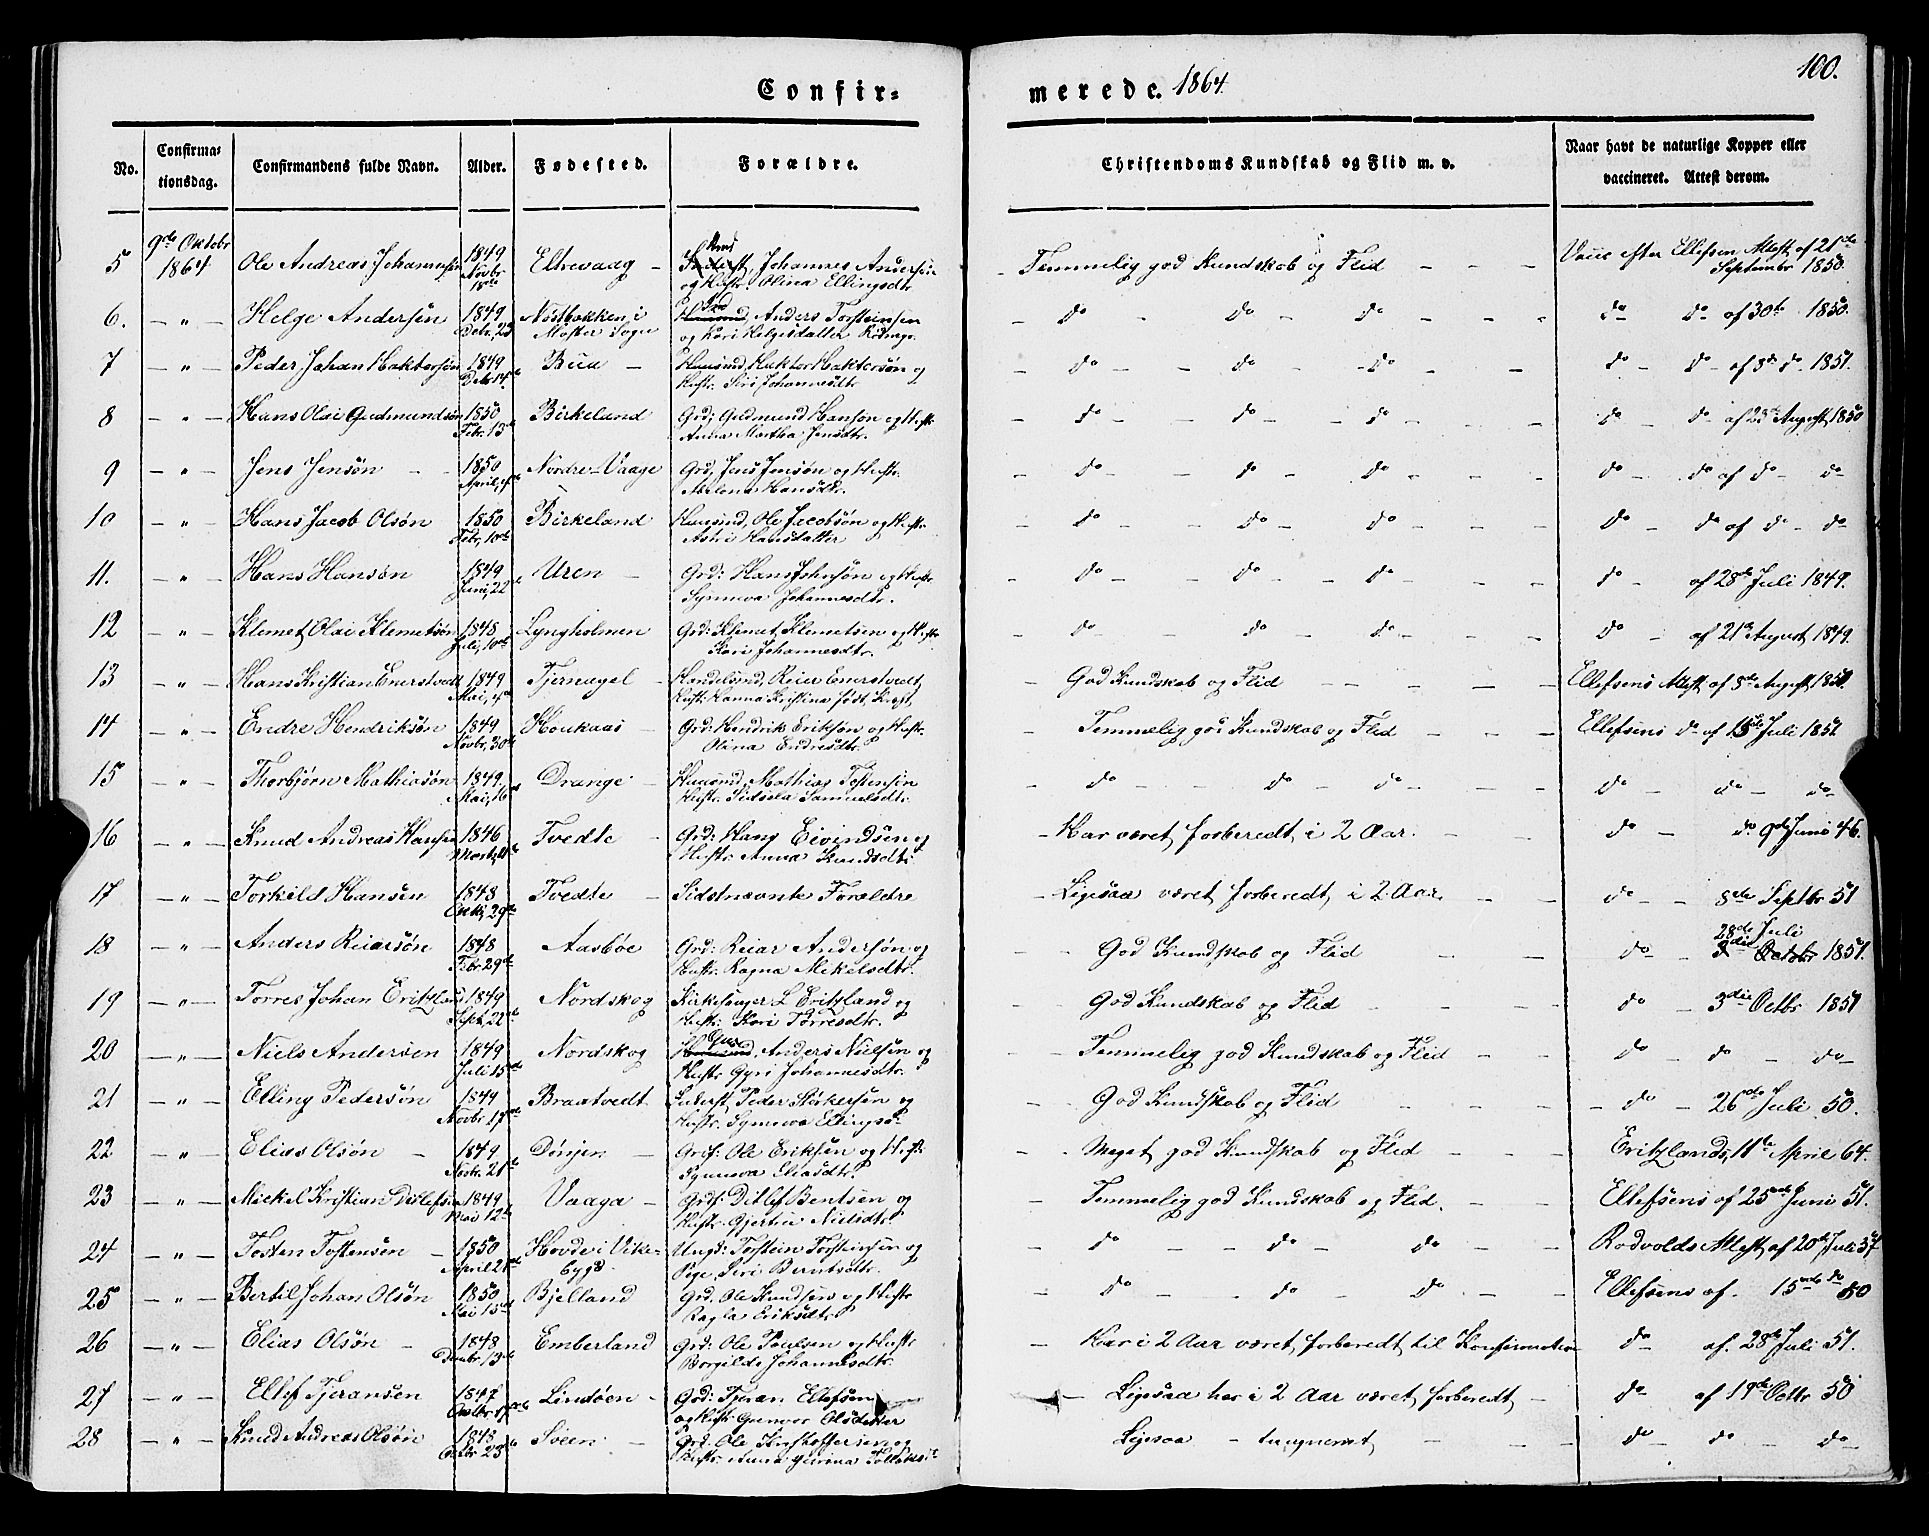 100.
Confir=
merede. 1864.
No.
Confirma=
tionsdag.
Confirmandens fulde Navn.
Alder.
Fødested.
Forældre.
Christendoms Kundskab og Flid m. v.
Naar havt de naturlige Kopper eller
vaccineret. Attest derom.
9de Oktobr
5 1864 Ole Andreas Johannesøn 1849 Novbr 18de Eltrevaag – Johannes Andersøn
og Hustr. Olina Ellingsdtr. – Temmelig god Kundskab og Flid – – – Vacc efter Ellefsens Attest af 21de
Septembr 1850.
6. – " – Helge Andersøn 1849 Decbr. 23 Nøstbakken i
Moster Sogn Anders Torsteinsen
og Kari Helgesdatter – do – do – do – – – do do af 30te 1850.
7 – " – Peder Johan Haktorsøn 1849 Decbr 14de Bua – Huusmd Haktor Haktorsøn og
Hustr. Siri Johannesdtr – do – do – do – – – do – do – af 8de do. 1851.
8 – " – Hans Olai Gudmundsøn 1850 Febr. 13de Birkeland Grd; Gudmund Hansøn og Hustr
Anna Martha Jensdtr. – do – do – do – – – do – do af 23de August 1850
9 – " – Jens Jensøn – – 1850 April, Nordre-Vaage Grd, Jens Jensøn og Hustr.
Abelona Hansdtr. – do – do – do – – – do – do af do – do
10 – " – Hans Jacob Olsøn 1850 Febr, 10de Birkeland Huusmd, Ole Jacobsøn og Hustr.
Astri Hansdatter – do – do – do – – – do – do af do – do
11. – " – Hans Hansøn 1849 Juni, 22de Uren – Grd: Hans Johnsøn og Hustr.
Synneva Johannesdtr. – do – do – do – – – do – af 28de Juli 1849.
12 – " – Klemet Olai Klemetsøn 1848 Juli, 10de Lyngholmen Grd: Klemet Klemetsen og Hustr
Kari Johannesdtr. – do – do – do – – – do – af 21de August 1849.
13 – " – Hans Kristian Enerstvedt 1849 Mai, Tjernagel – Handelsmd, Reier Enerstvedt,
Hustr. Hanna Kristina født – God Kundskab og Flid – – – – Ellefsens Attest af 5te August 1851.
14 – " – Endre Hendriksøn 1849 Novbr, 30te Houkaas – Grd: Hendrik Eriksøn og Hustr.
Olina Endresdtr. – Temmelig god Kundskab og Flid – – – Ellefsens do af 15de Juli 1851
15 – " – Thorbjørn Mathiasøn 1849. Mai, 16de Drange – Huusmd, Mathias Tostensøn
Hustr. Sidsela Samuelsdtr. – do – do – do – – – do – do – do
16 – " – Knud Andreas Hansen 1846 Marts, Tvedte – Grd: Hans Eivindsen og
Hustr. Anna Knudsdtr. – Har været forberedt i 2 Aar. – – do – do 9de Juni 46.
17 – " – Torkild Hansen 1848 29de Tvedte – Sidstnævnte Forældre – Ligesaa været forberedt i 2 Aar. – – do – – 8de Septbr 51
18 – " – Anders Reiarsøn 1848 Febr 29de Aasbøe Grd: Reiar Andersøn og
Hustr. Ragna Mikelsdtr. – God Kundskab og Flid – – do – 28de Juli
3die Octobr 1851.
19 – " – Torres Johan Eritzland 1849 Sept. 22de Nordskog Kirkesanger L Eritzland og
Hustr. Kari Torresdtr. – God Kundskab og Flid – – do – 3die Octbr 1851
20 – " – Niels Andersen 1849 Juli 15de Nordskog Anders Nielsøn og
Hustr. Gyri Johannesdtr. – – Temmelig god Kundskab og Flid – – do – do – do –
21 – " – Elling Pedersøn 1849 Novbr 17de Braatvedt Peder Størkersøn og
Hustr. Synneva Ellingsdtr – – God Kundskab og Flid – – – do – 26de Juli 50.
22 – " – Elias Olsøn – 1849. Novbr. 21de Dønjen – Ole Eriksøn og Hustr
Synneva Eliasdtr. – Meget god Kundskab og Flid – – Eritzlands, 11te April 64.
23 – " – Mickel Kristian Ditlefsen 1849 Mai 12te Vaaga – Grdf: Ditlef Bentsen og
Hustr. Gjertrui Nielsdtr. – Temmelig god Kundskab og Flid. – – Ellefsens af 25de Juni 51.
24 – " – Tosten Tostensen – 1850 April 21de Hovde i Vike-
bygd. Ungd: Torstein Torsteinsen og
Pige, Siri Berntsdtr. – do – – do – do – – Rødvolds Attest af 20de Juli 57
25 – " – Bertil Johan Olsøn 1850 Mai 15de Bjelland Grd. Ole Knudsen og Hustr
Ragla Eriksdtr. – do – – do – do – – Ellefsens af. 15de do 50
26 – " – Elias Olsøn – 1848 Decmbr, 13de Emberland Grd: Ole Poulsen og Hustr
Borgilde Johannesdtr. – Har i 2 Aar været forberedt til Konfirmation do – af. 28de Juli 51.
27 – " – Ellef Tjeransen 1847 Lindøen – Grd: Tjeran Ellefsen
og Hustr Gunvor Olsdatter – Ligesaa har i 2 Aar været forberedt – do – af 19de Octbr 50
28 – " – Knud Andreas Olsøn 1848 Octbr 23de Sveen – Grd. Ole Kristoffersen og
Hustr. Anna Gurina – Ligesaa – tungnemt – – – do – do – do –